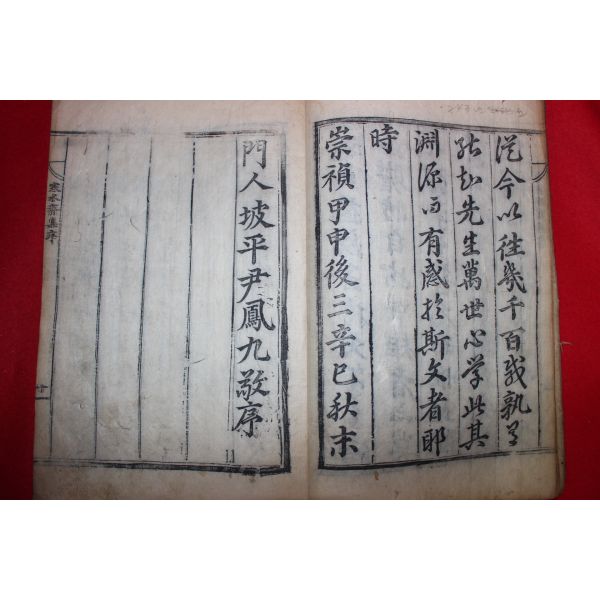 從今以往幾千百載孰有
能知先生萬世心學此其
淵源而有感於斯文者耶
時
崇禎甲申後三辛巳秋末
門人坡平尹鳳九敬序
寒水齋集序